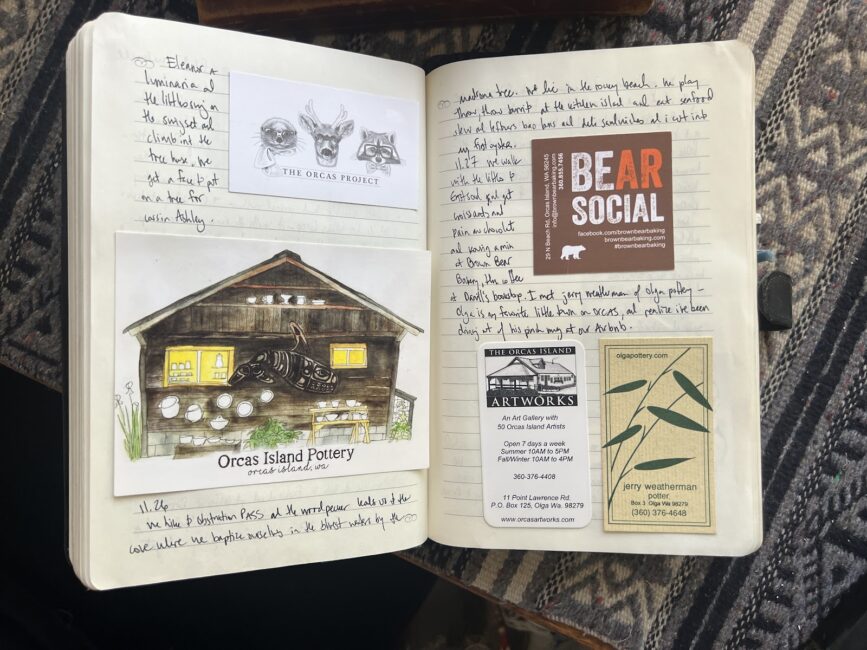 Eleanor
luminaria
the
the swing set and
climb in the
tree house. We
get a face to put
on a tree for
cousin Ashley.
THE ORCAS PROJECT
Orcas Island Pottery
orcas island, wa
11.26
we hike to Obstruction PASS and the woodpecker leads us to the
cove where we baptize ourselves in the waters by the
madrona tree. in the rocky beach. We play
at the kitchen island and eat seafood
and sandwiches and i cut into
my first oyster.
11.27 we walk
with the littles to
get
croissants and
pain au chocolat
and
at Brown Bear
Bakery, then coffee
at Darvill's bookshop. I met jerry weatherman of olga pottery -
Olga is my favorite little town on ORCAS, and realize i've been
out of his pink mug at our Airbnb.
29 N Beach Rd, Orcas Island, WA 98245
info@brownbearbaking.com
360.855.7456
BEAR
SOCIAL
facebook.com/brownbearbaking
brownbearbaking.com
#brownbearbaking
THE ORCAS ISLAND
ARTWORKS
An Art Gallery with
50 Orcas Island Artists
Open 7 days a week
Summer 10AM to 5PM
Fall/Winter 10AM to 4PM
360-376-4408
11 Point Lawrence Rd.
P.O. Box 125, Olga Wa. 98279
www.orcasartworks.com
olgapottery.com
jerry weatherman
potter
Box 3 Olga Wa 98279
(360) 376-4648